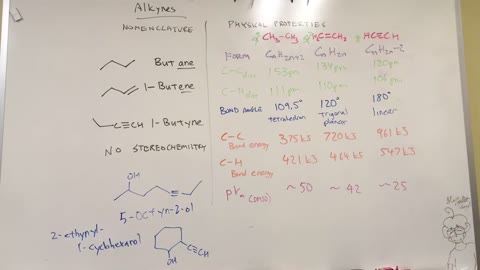 Alkynes
NOMENCLATURE
Butane
1-Butene
C≡CH 1-Butyne
NO STEREOCHEMISTRY
OH
5-Octyn-2-ol
2-ethynyl-
1-cyclohexanol
C≡CH
OH
PHYSICAL PROPERTIES
CH₃-CH₃ H₂C=CH₂ HC≡CH
FORM CₙH₂ₙ₊₂ CₙH₂ₙ CₙH₂ₙ-2
C-C 153pm 134pm 120pm
C-H 111pm 110pm 106pm
BOND ANGLE 109.5° 120° 180°
tetrahedron trigonal planar linear
C-C Bond energy 375kJ 720kJ 961kJ
C-H Bond energy 421kJ 464kJ 547kJ
pKₐ (conso) ~50 ~42 ~25